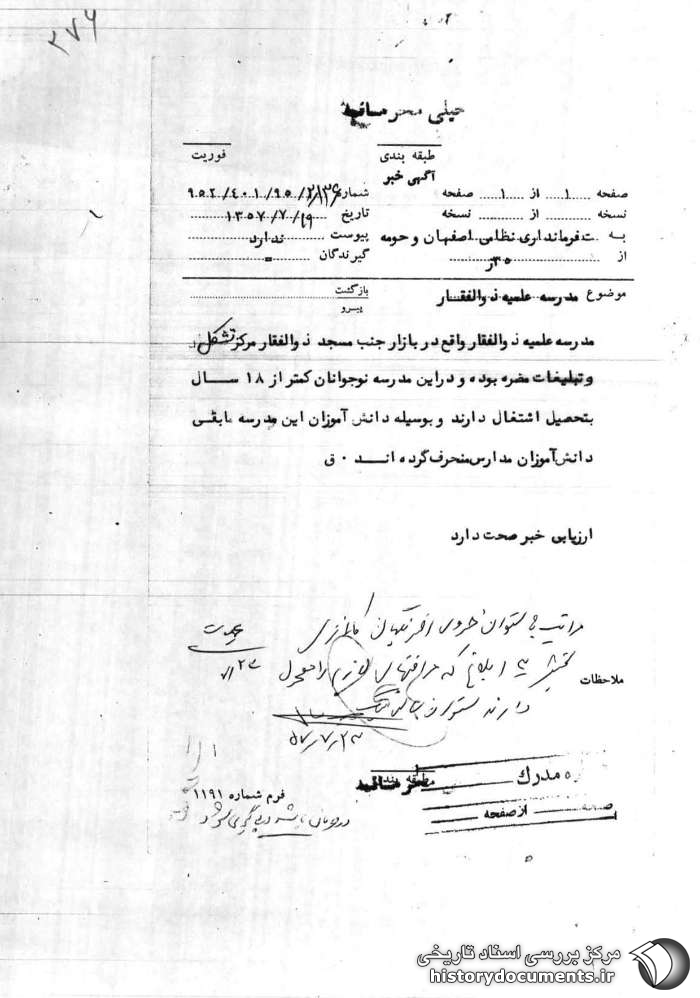 ۲۷۶
خیلی محرمانه
طبقه بندی
فوریت
آگهی خبر
صفحه ۱ از ۱ صفحه
شماره ۹۵۲/۴۰۱/۹۵/
نسخه از نسخه
تاریخ ۱۳۵۷/۷/۱۹
به فرمانداری نظامی اصفهان و حومه
پیوست ندارد
از
گیرندگان
موضوع مدرسه علمیه ذوالفقار
بازگشت
پیرو
مدرسه علمیه ذوالفقار واقع در بازار جنب مسجد ذوالفقار مرکز تشکل
و تبلیغات مضره بوده و در این مدرسه نوجوانان کمتر از ۱۸ سال
بتحصیل اشتغال دارند و بوسیله دانش آموزان این مدرسه مابقی
دانش آموزان مدارس منحرف گرده اند ۰ ق
ارزیابی خبر صحت دارد
مراتب به ستوان
ملاحظات
ابلاغ که مراقبتهای لازم را معمول
دارند
۵۷/۷/۲۳
طبقه بندی
محرمانه
مدرک
فرم شماره ۱۱۹۱
صفحه از صفحه
مرکز بررسی اسناد تاریخی
historydocuments.ir